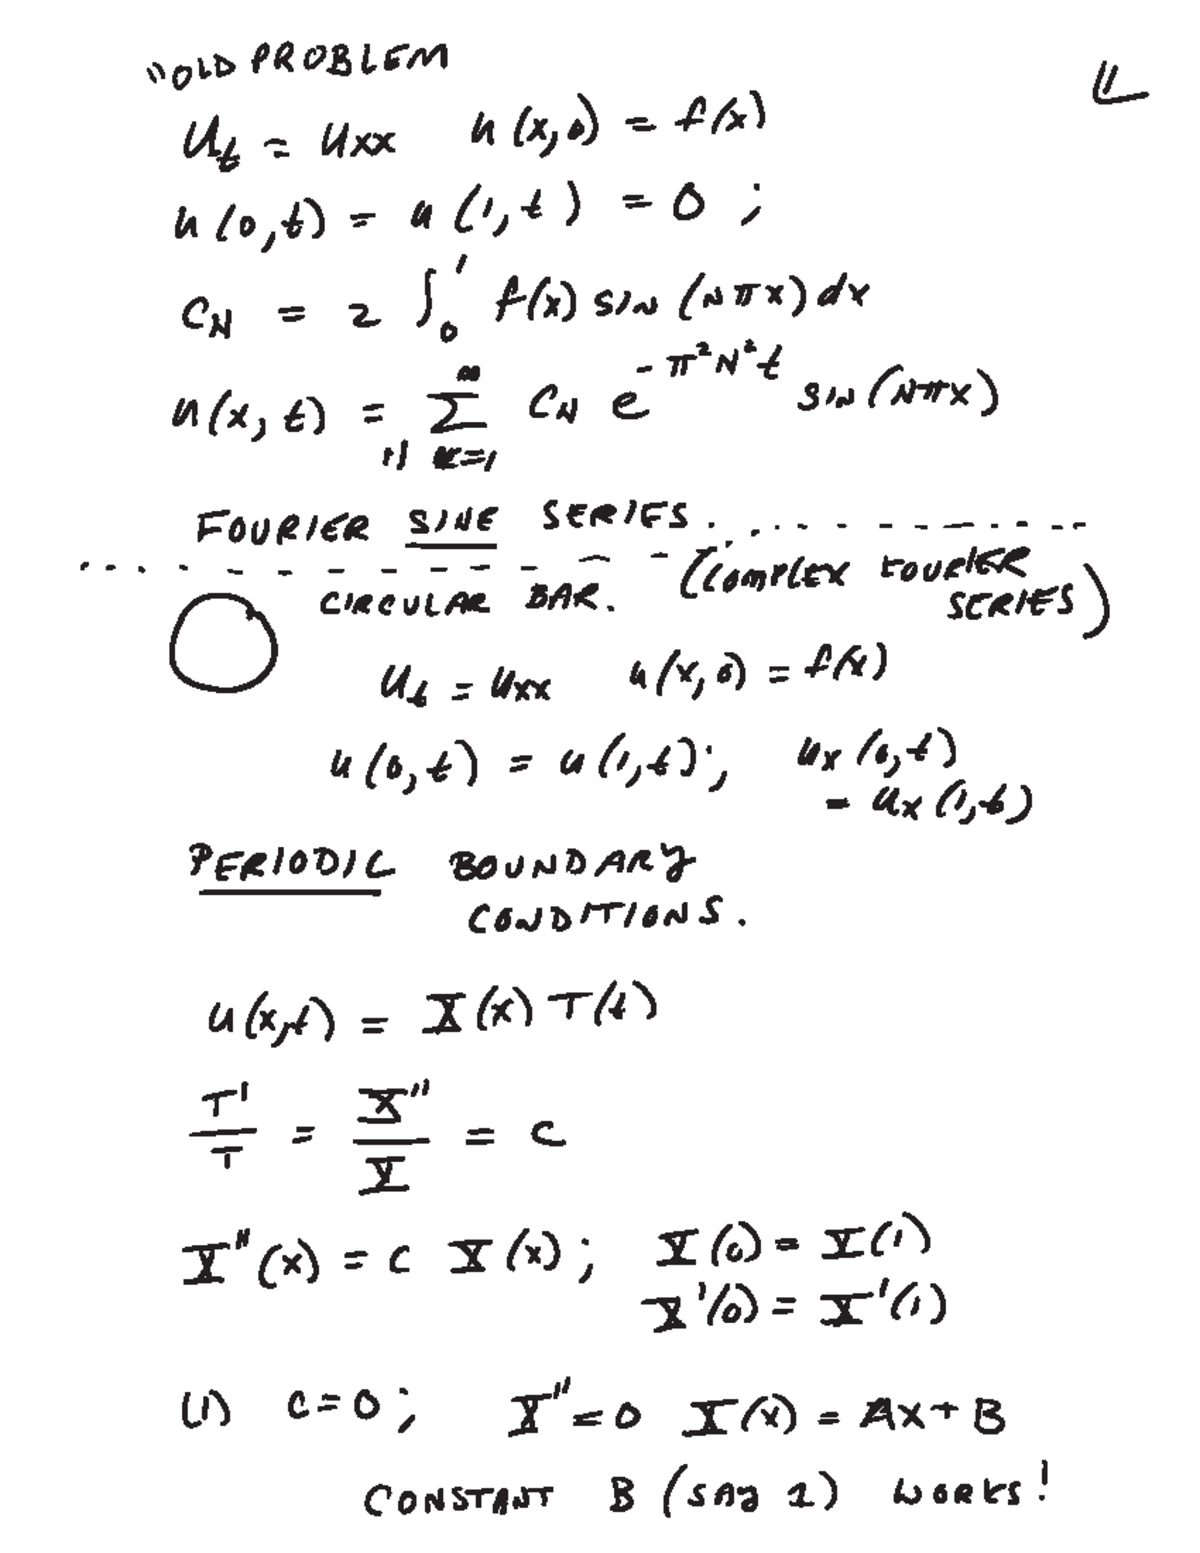 "OLD PROBLEM
1
U_t = U_xx u(x,0) = f(x)
u(0,t) = u(1,t) = 0 ;
C_N = 2 ∫_0^1 f(x) SIN (Nπx) dx
u(x,t) = Σ_{N=1}^∞ C_N e^{-π²N²t} SIN (Nπx)
FOURIER SINE SERIES.
CIRCULAR BAR. (COMPLEX FOURIER
SERIES)
U_t = U_xx u(x,0) = f(x)
u(0,t) = u(1,t); u_x(0,t)
= u_x(1,t)
PERIODIC BOUNDARY
CONDITIONS.
u(x,t) = X(x) T(t)
T'/T = X''/X = C
X''(x) = C X(x); X(0) = X(1)
X'(0) = X'(1)
(1) C=0; X''=0 X(x) = Ax+B
CONSTANT B (SAY 1) WORKS!